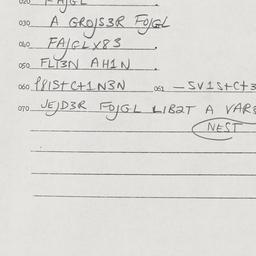 020 FAJGL
030 A GROJS3R FOJGL
040 FAJGLX83
050 FLI3N AH1N
060 f8IStC+1N3N 061 -SV1StCt3
070 JEJD3R FOJGL LIB2T A VARS
NEST